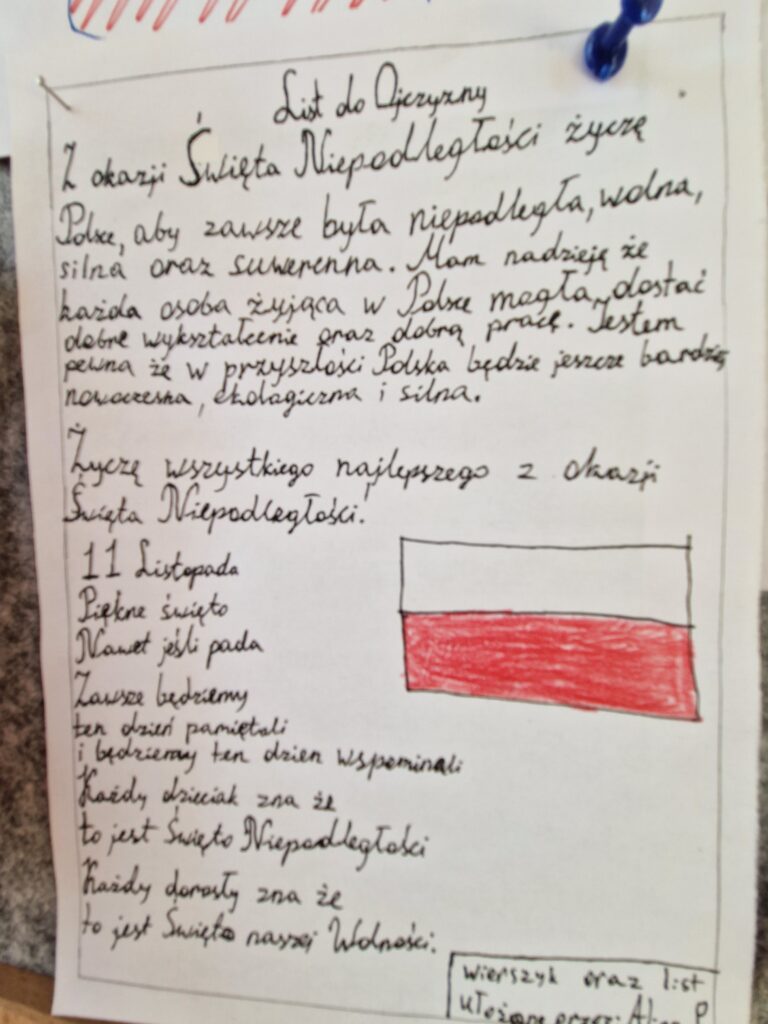 List do Ojczyzny
Z okazji Święta Niepodległości życzę
Polsce, aby zawsze była niepodległa, wolna,
silna oraz suwerenna. Mam nadzieję że
każda osoba żyjąca w Polsce mogła dostać
dobre wykształcenie oraz dobrą pracę. Jestem
pewna że w przyszłości Polska będzie jeszcze bardziej
nowoczesna, ekologiczna i silna.
Życzę wszystkiego najlepszego z okazji
Święta Niepodległości!
11 Listopada
Piękne święto
Nawet jeśli pada
Zawsze będziemy
ten dzień pamiętali
i będziemy ten dzien wspominali
Każdy dzieciak zna że
to jest Święto Niepodległości
Każdy dorosły zna że
to jest Święto naszej Wolności.
wierszyk oraz list
ułożone przez: P